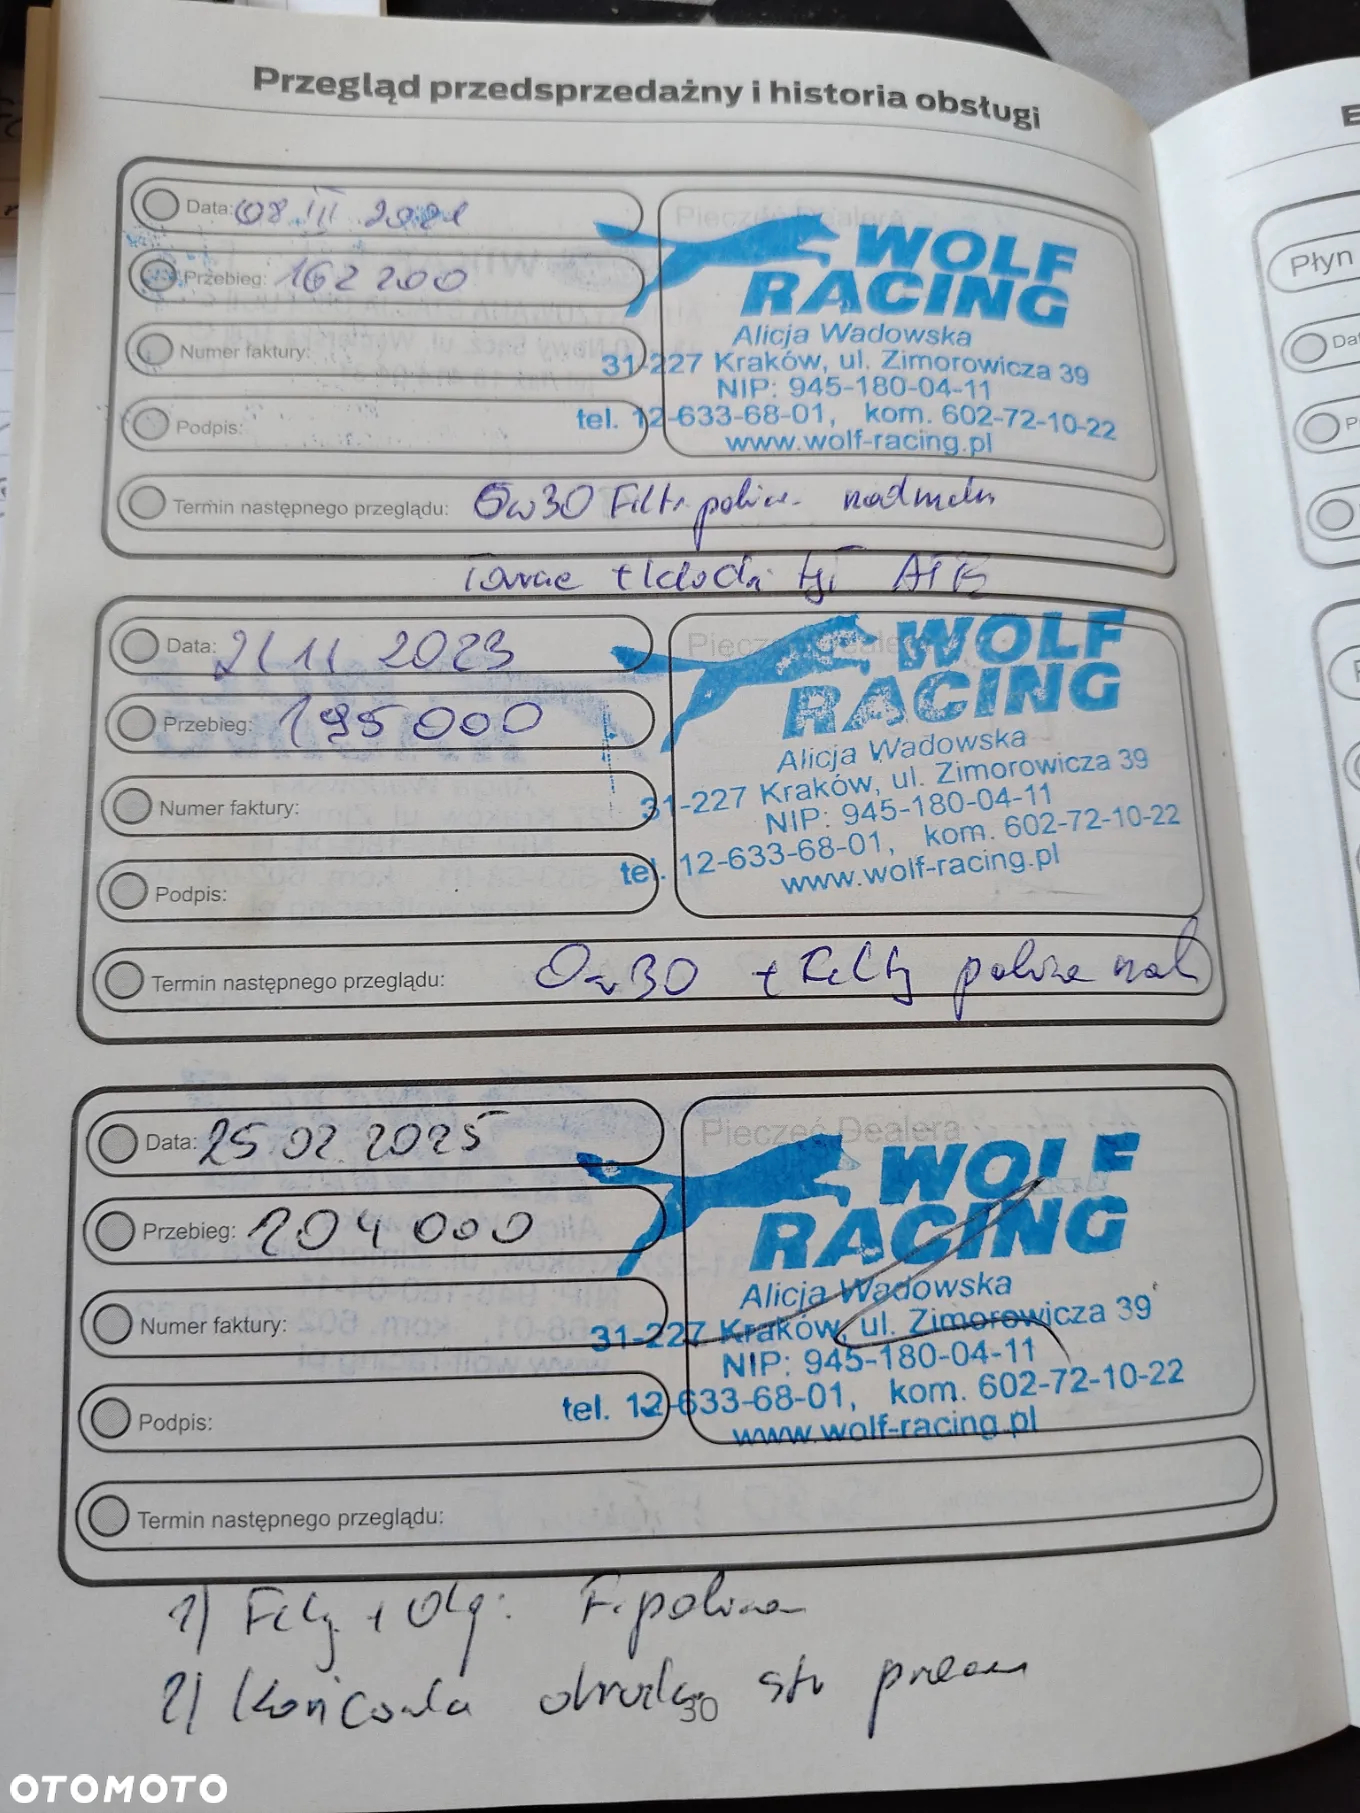 Przegląd przedsprzedażny i historia obsługi
Data: 08 III 2021
Pieczęć Dealera
Przebieg: 162 200
Numer faktury:
Podpis:
WOLF
RACING
Alicja Wadowska
31-227 Kraków, ul. Zimorowicza 39
NIP: 945-180-04-11
tel. 12-633-68-01, kom. 602-72-10-22
www.wolf-racing.pl
Termin następnego przeglądu: 0w30 Filtr paliwa
Data: 21 11 2023
Pieczęć Dealera
Przebieg: 195 000
Numer faktury:
Podpis:
WOLF
RACING
Alicja Wadowska
31-227 Kraków, ul. Zimorowicza 39
NIP: 945-180-04-11
tel. 12-633-68-01, kom. 602-72-10-22
www.wolf-racing.pl
Termin następnego przeglądu: 0w30 + Filtry paliwa
Data: 25 02 2025
Pieczęć Dealera
Przebieg: 204 000
Numer faktury:
Podpis:
WOLF
RACING
Alicja Wadowska
31-227 Kraków, ul. Zimorowicza 39
NIP: 945-180-04-11
tel. 12-633-68-01, kom. 602-72-10-22
www.wolf-racing.pl
Termin następnego przeglądu:
1) Filtry + Olej F. paliwa
2) Końcówka drążka str prawa
30
Płyn
OTOMOTO